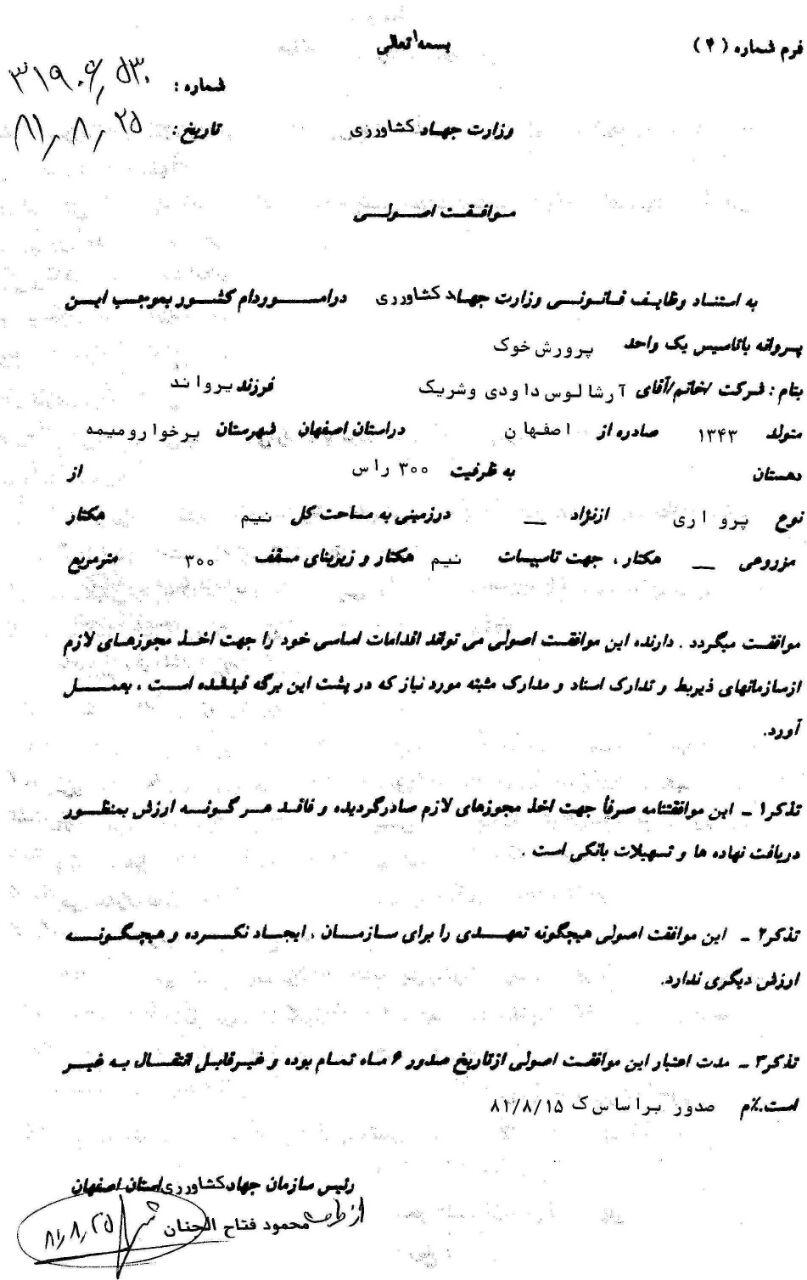 بسمه تعالی
فرم شماره (۲)
شماره : ۵۳۰/۳۱۹۰۶
تاریخ : ۸۱/۸/۲۵
وزارت جهاد کشاورزی
موافقت اصولی
به استناد وظایف قانونی وزارت جهاد کشاورزی درامور دام کشور بموجب این
پروانه باتاسیس یک واحد پرورش خوک
بنام : شرکت /خانم/آقای آرشالوس داودی وشریک فرزند یرواند
متولد ۱۳۴۳ صادره از اصفهان دراستان اصفهان شهرستان برخوارومیمه
دهستان به ظرفیت ۳۰۰ راس از
نوع پرواری ازنژاد — درزمینی به مساحت کل نیم هکتار
مزروعی — هکتار ، جهت تاسیسات نیم هکتار و زیربنای مسقف ۳۰۰ مترمربع
موافقت میگردد . دارنده این موافقت اصولی می تواند اقدامات اساسی خود را جهت اخذ مجوزهای لازم
ازسازمانهای ذیربط و تدارک اسناد و مدارک مثبته مورد نیاز که در پشت این برگه قیدشده است ، بعمل
آورد.
تذکر۱ - این موافقتنامه صرفاً جهت اخذ مجوزهای لازم صادرگردیده و فاقد هر گونه ارزش بمنظور
دریافت نهاده ها و تسهیلات بانکی است .
تذکر۲ - این موافقت اصولی هیچگونه تعهدی را برای سازمان ، ایجاد نکرده و هیچگونه
ارزش دیگری ندارد.
تذکر۳ - مدت اعتبار این موافقت اصولی ازتاریخ صدور ۶ ماه تمام بوده و غیرقابل انتقال به غیر
است.٪م صدور براساس ک ۸۱/۸/۱۵
رئیس سازمان جهاد کشاورزی استان اصفهان
از طرف محمود فتاح الجنان
۸۱/۸/۲۵